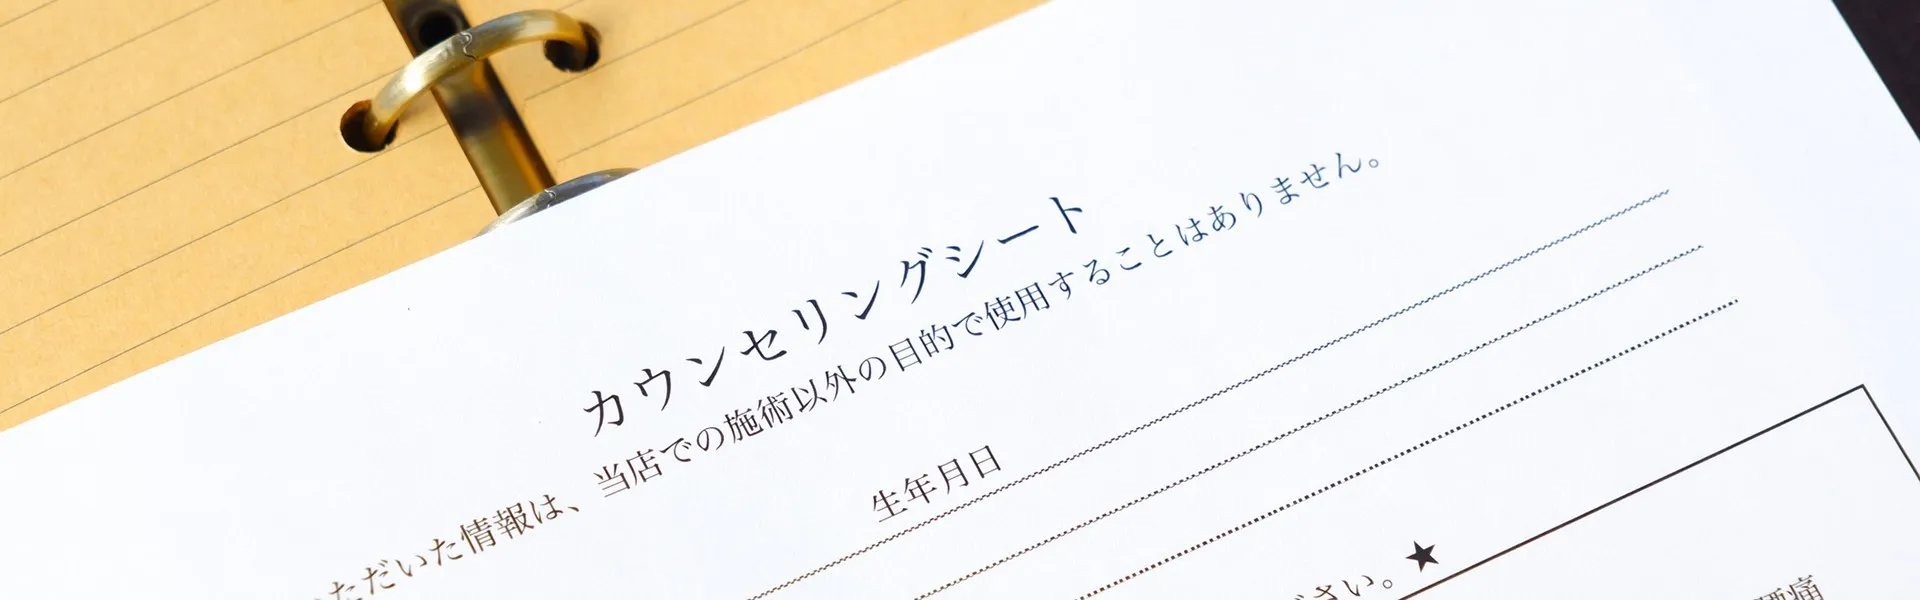 カウンセリングシート
いただいた情報は、当店での施術以外の目的で使用することはありません。
生年月日
ださい。★
腰痛